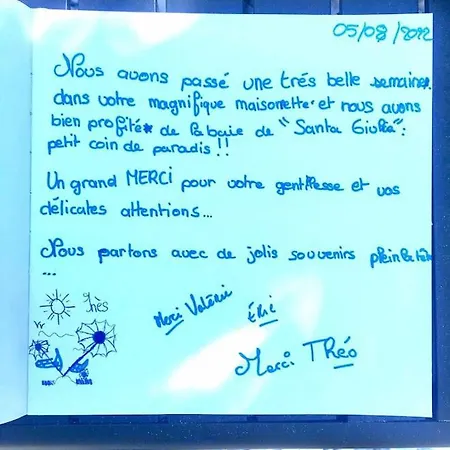 05/08/2022
Nous avons passé une trés belle semaine
dans votre magnifique maisonette et nous avons
bien profité de la baie de "Santa Giulia":
petit coin de paradis !!
Un grand MERCI pour votre gentillesse et vos
délicates attentions...
Nous partons avec de jolis souvenirs plein la tête
...
Inès
Merci
Merci Théo